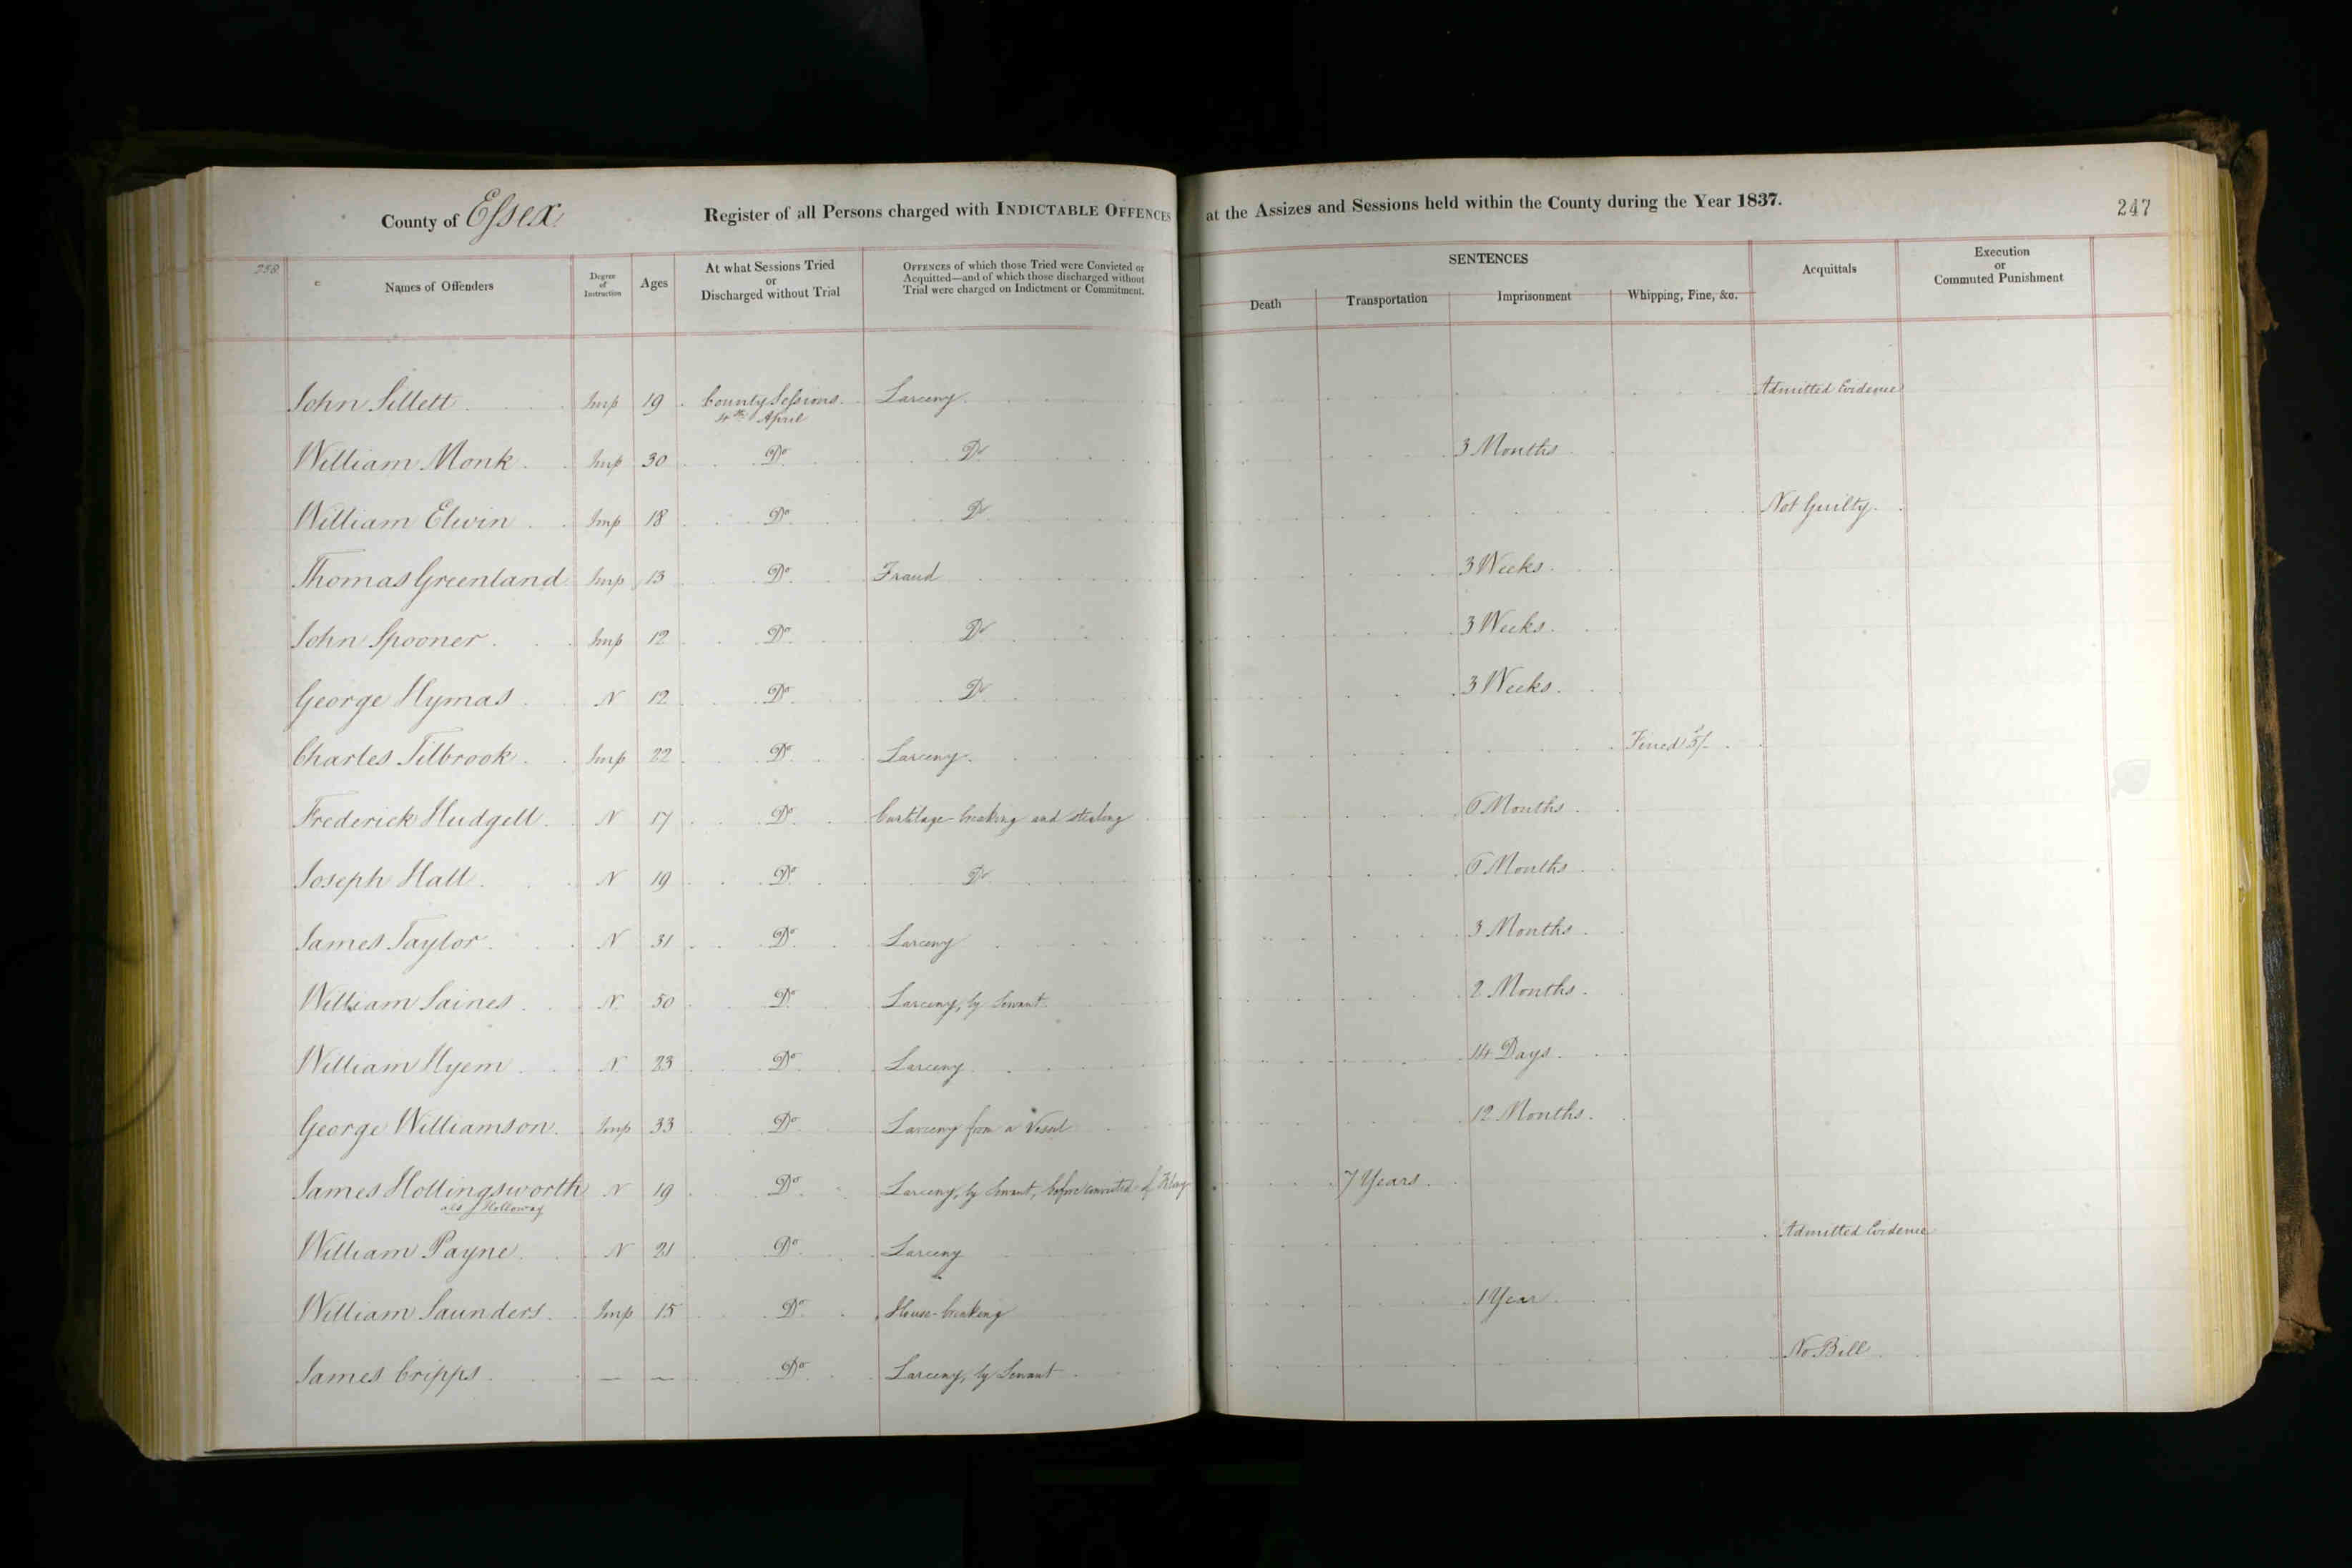 County of Essex Register of all Persons charged with INDICTABLE OFFENCES at the Assizes and Sessions held within the County during the Year 1837. 247
258
Names of Offenders
Degree of Instruction
Ages
At what Sessions Tried
or
Discharged without Trial
OFFENCES of which those Tried were Convicted or
Acquitted—and of which those discharged without
Trial were charged on Indictment or Commitment.
SENTENCES
Death
Transportation
Imprisonment
Whipping, Fine, &c.
Acquittals
Execution
or
Commuted Punishment
John Sillett Imp 19 County Sessions Larceny Admitted Evidence
4th April
William Monk Imp 30 Do Do 3 Months
William Elwin Imp 18 Do Do Not Guilty
Thomas Greenland Imp 13 Do Fraud 3 Weeks
John Spooner Imp 12 Do Do 3 Weeks
George Hymas N 12 Do Do 3 Weeks
Charles Tilbrook Imp 22 Do Larceny Fined 5/-
Frederick Hudgell N 17 Do Curtilage-breaking and stealing 6 Months
Joseph Hall N 19 Do Do 6 Months
James Taylor N 31 Do Larceny 3 Months
William Saines N 50 Do Larceny, by Servant 2 Months
William Hyem N 23 Do Larceny 14 Days
George Williamson Imp 33 Do Larceny from a Vessel 12 Months
James Hollingsworth N 19 Do Larceny, by Servant, before convicted of Felony 7 Years
als J Holloway
William Payne N 21 Do Larceny Admitted Evidence
William Saunders Imp 15 Do House-breaking 1 Year
James Cripps — — Do Larceny, by Servant No Bill